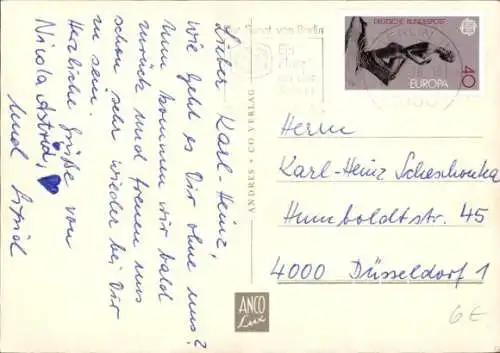 Lieber Karl-Heinz,
wie geht es Dir ohne uns?
Nun kommen wir bald
zurück und freuen uns
schon sehr wieder bei Dir
zu sein.
Herzliche Grüße von
Nicola Astrid,
und Sigrid
ANDRES + CO VERLAG
ANCO
Lux
von Berlin
Ein
DEUTSCHE BUNDESPOST
EUROPA
40
BERLIN
Herrn
Karl-Heinz Scheschonka
Humboldtstr. 45
4000 Düsseldorf 1
6E